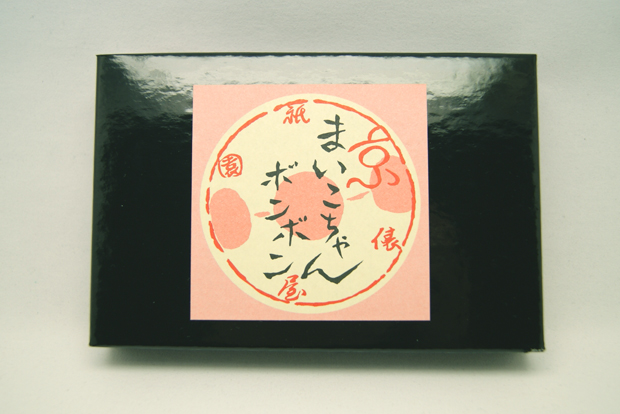 京
まいこちゃん
ボンボン
祇
園
俵
屋